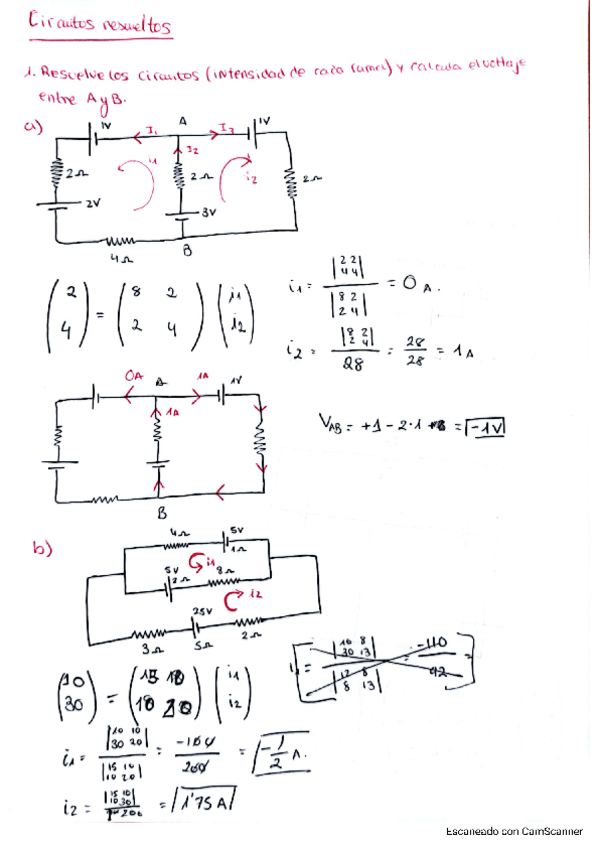 Circuitos resueltos
1. Resuelve los circuitos (intensidad de cada rama) y calcula el voltaje
entre A y B.
a)
1V I₁ A I₃ 1V
2Ω i₁ I₂ 2Ω i₂ 2Ω
2V 3V
4Ω B
(2 4) = (8 2 2 4) (i₁ i₂)
i₁ = |2 2 4 4| / |8 2 2 4| = 0 A.
i₂ = |8 2 2 4| / 28 = 28/28 = 1A
0A A 1A 1V
1A
V_AB = +1 - 2·1 = -1V
B
b)
4Ω 5V 1Ω
i₁
5V 2Ω 8Ω
i₂
25V
3Ω 5Ω 2Ω
i₁ = |10 8 30 13| / |12 8 8 13| = -110/92 =
(10 30) = (15 10 10 20) (i₁ i₂)
i₁ = |10 10 30 20| / |15 10 10 20| = -100/200 = -1/2 A.
i₂ = |15 10 10 30| / 200 = 1'75 A
Escaneado con CamScanner